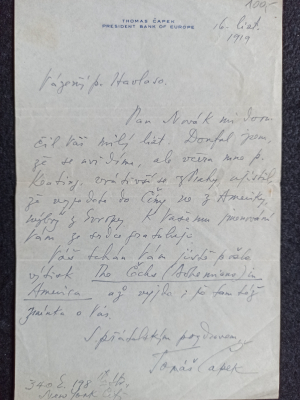 THOMAS ČAPEK
PRESIDENT BANK OF EUROPE
16. list.
1919
Vážený p. Havlaso.
Pan Novák mi doru-
čil Váš milý list. Doufal jsem,
že se uvidíme, ale včera mne p.
vrátivší se z Prahy, ujistil
že vyjedete do Číny ne z Ameriky,
nýbrž z Evropy. K Vašemu jmenování
Vám ze srdce gratuluji.
Vaší Vám jistě pošlu
výtisk The Čechs (Bohemians) in
America až vyjde; je tam též
zmínka o Vás.
S přátelským pozdravem
Tomáš Čapek
340 E. 198
New York City